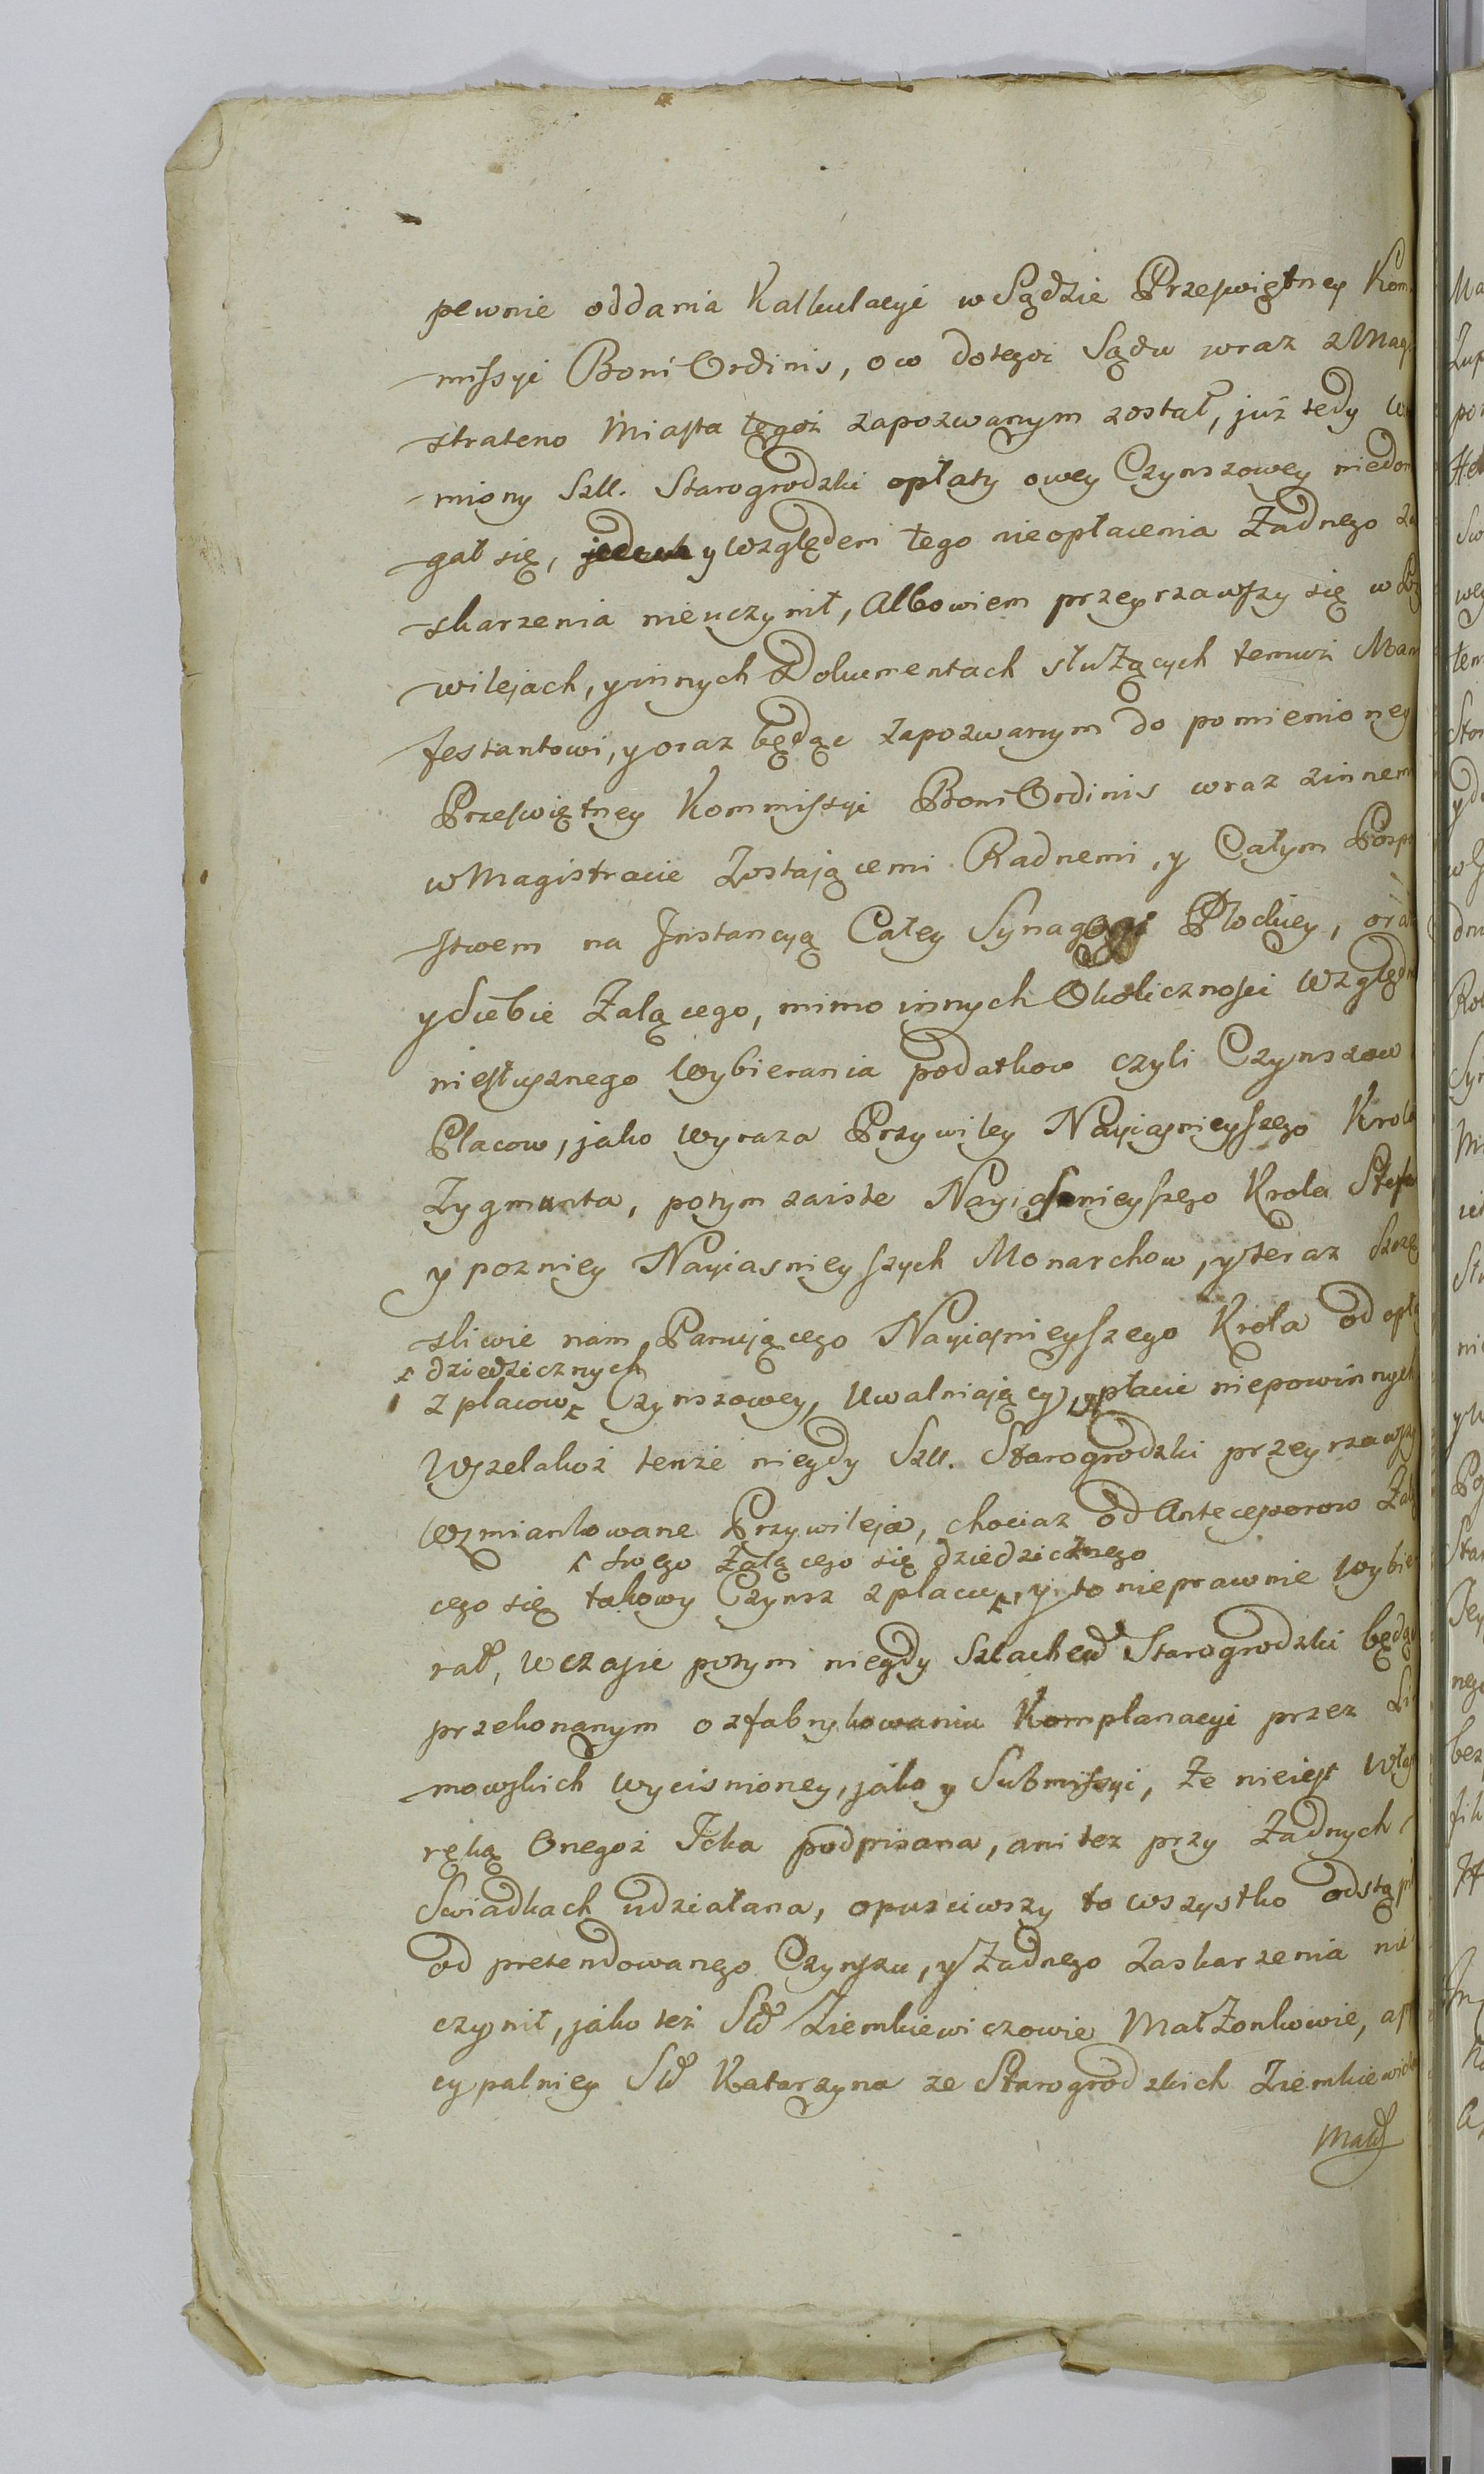 pewnie oddania Kalkulacyi w Sądzie Przeświętney Kom
missyi Boni Ordinis, o co do tegoż Sądu wraz z Mag
stratem Miasta tegoż zapozwanym został, już tedy w
miony Szll. Starogrodzki opłaty owey Czynszowey niedom
gał się, y względem tego nieopłacenia Żadnego za
skarzenia nieuczynił, Albowiem przeyrzawszy się w Prz
wilejach, y innych Dokumentach służących temuż Man
festantowi, y oraz będąc zapozwanym do pomienioney
Przeświętney Kommissyi Boni Ordinis wraz z innemi
w Magistracie Zostającemi Radnemi, y Całym Posp
stwem na Instancyą Całey Synagogi Płockiey, oraz
y Siebie Żalącego, mimo innych Okoliczności względe
niesłusznego wybierania podatkow czyli Czynszow
Placow, jako wyraza Przywiley Nayiasnieyszego Krola
Zygmunta, potym zaiste Nayiasnieyszego Krola Stefa
y pozniey Nayiasnieyszych Monarchow, y teraz szczę
sliwie nam Panującego Nayiasnieyszego Krola od opła
dziedzicznych
z placow Czynszowey, Uwalniający, płacic niepowinnych
Wszelakoż tenże niegdy Szll. Starogrodzki przeyrzawszy
wzmiankowane Przywileja, chociaz od Antecessorow Żalą
swego Żalącego się dziedzicznego
cego się takowy Czynsz z placu, y to nieprawnie wybie
rał, w czasie potym niegdy Szlachet Starogrodzki będąc
przekonanym o zfabrykowaniu Komplanacyi przez
mowskich wycisnioney, jako y Submissyi, że nieiest Włas
ręką Onegoż Icka podpisana, ani tez przy Żadnych
Swiadkach udziałana, opusciwszy to wszystko odstąpi
od pretendowanego Czynszu, y Żadnego Zaskarzenia nie
czynił, jako też Sł Ziemkiewiczowie Małżonkowie, a
cypalniey Sł Katarzyna ze Starogrodzkich Ziemkiewicz
Mał